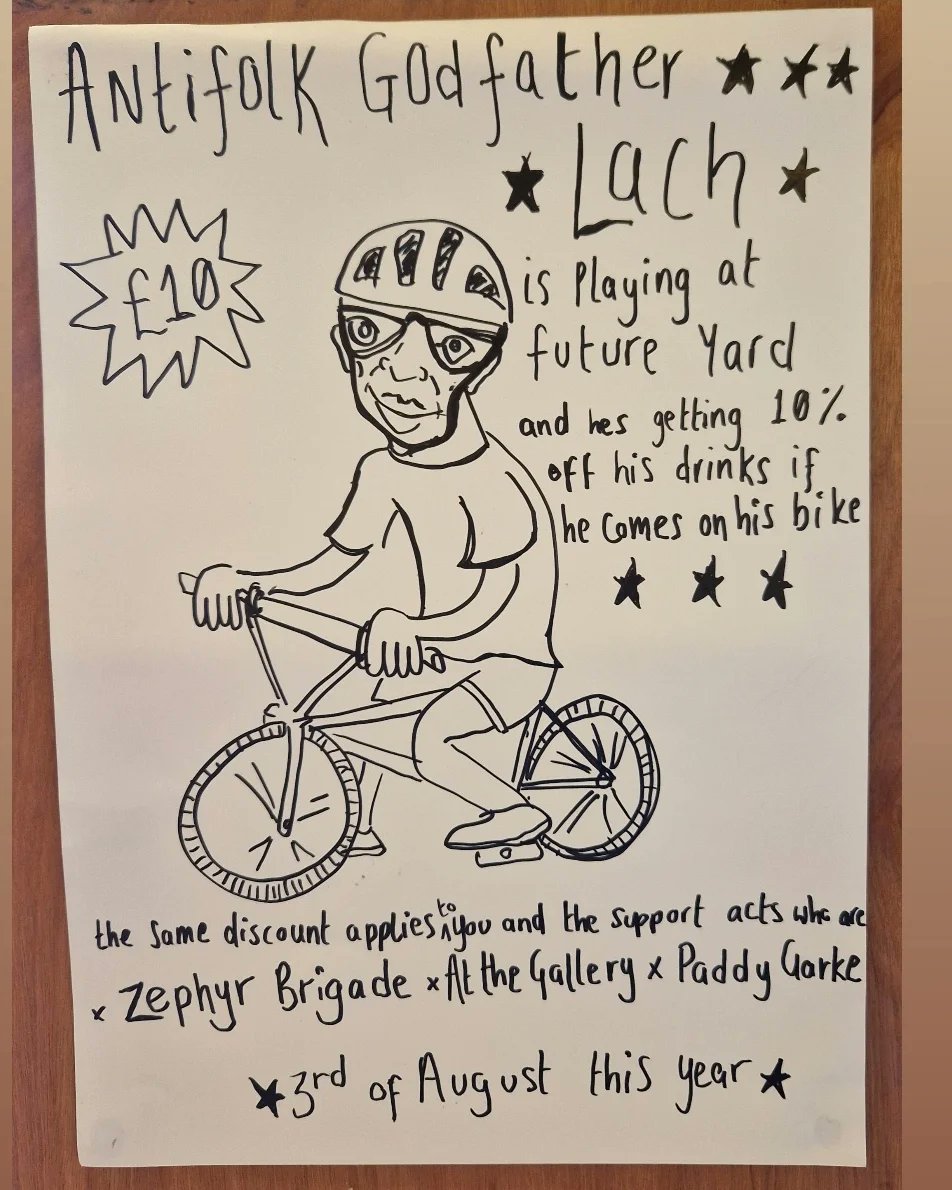 Antifolk Godfather
Lach
£10
is Playing at
future Yard
and hes getting 10%
off his drinks if
he comes on his bike
the same discount applies to you and the support acts who are
x Zephyr Brigade x At the Gallery x Paddy Gorke
3rd of August this year